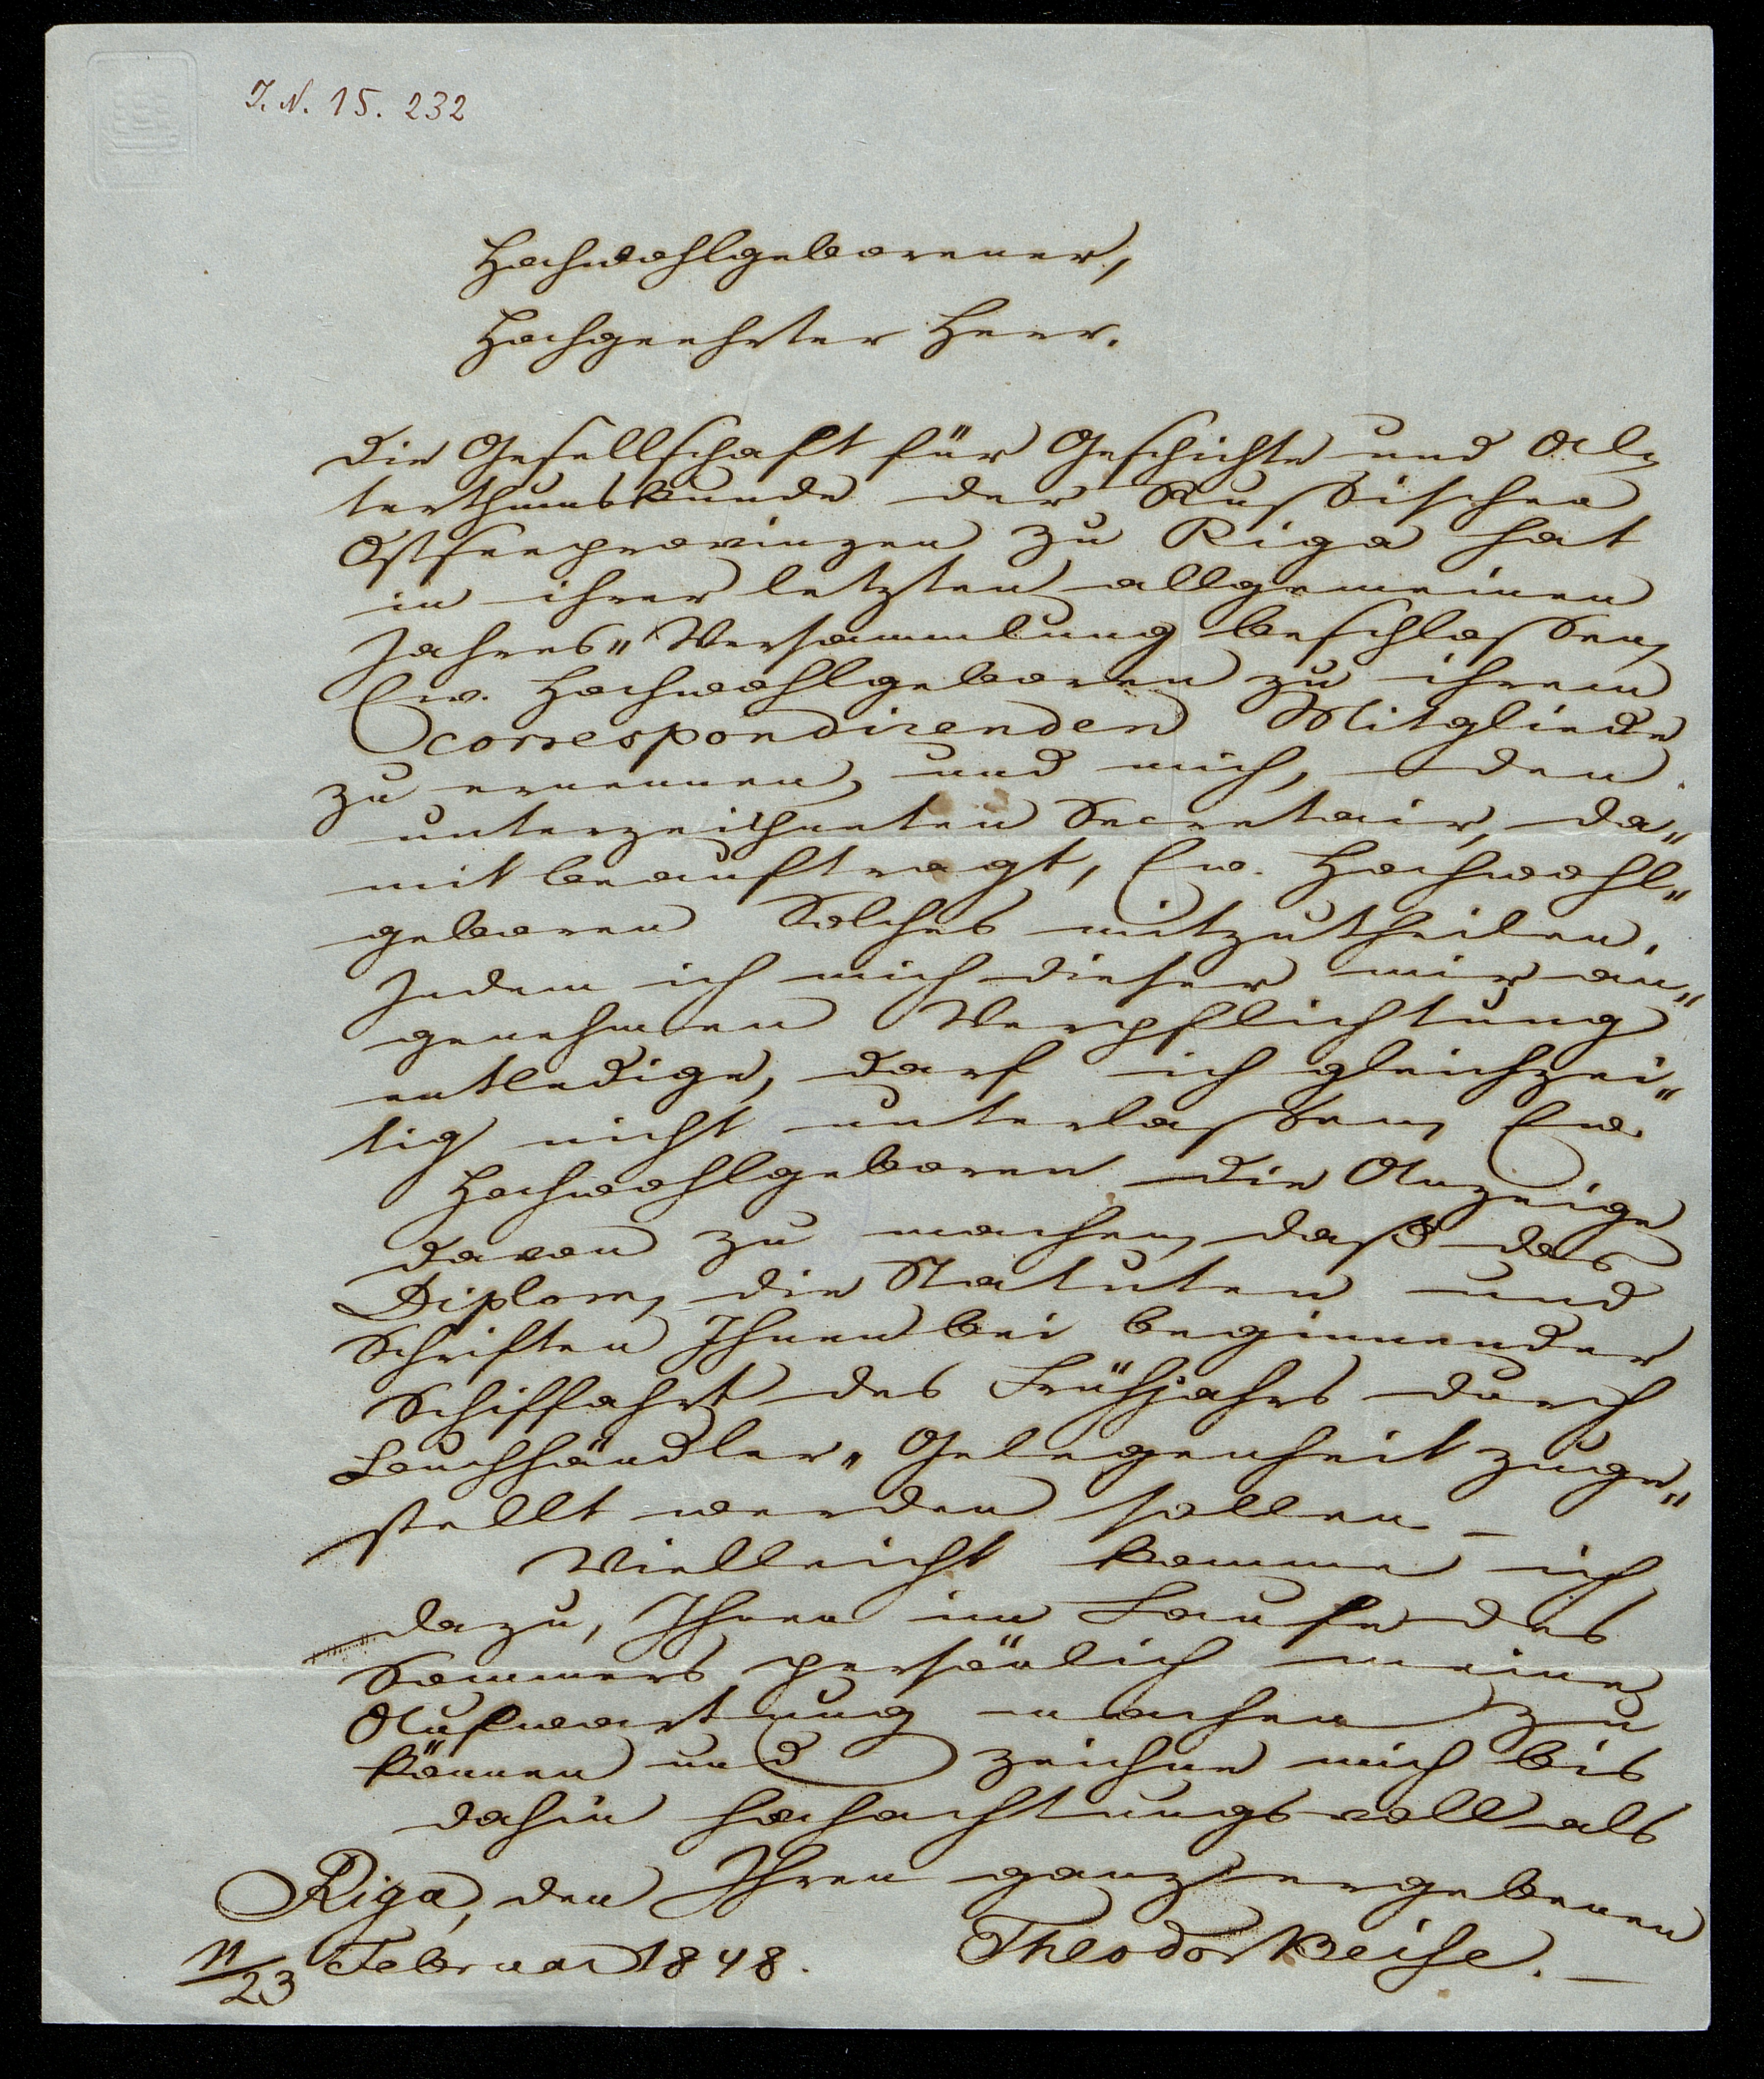 J. N. 15. 232
Hochwohlgeborener,
Hochgeehrter Herr.
Die Gesellschaft für Geschichte und Al-
terthumskunde der Russischen
Ostseeprovinzen zu Riga hat
in ihrer letzten allgemeinen
Jahres-Versammlung beschlossen,
Ew. Hochwohlgeboren zu ihrem
correspondirenden Mitgliede
zu ernennen, und mich, den
unterzeichneten Secretair, da-
mit beauftragt, Ew. Hochwohl-
geboren Solches mitzutheilen.
Indem ich mich dieser mir an-
genehmen Verpflichtung
entledige, darf ich gleichzei-
tig nicht unterlassen, Ew.
Hochwohlgeboren die Anzeige
davon zu machen, daß das
Diplom, die Statuten und
Schriften Ihnen bei beginnender
Schiffahrt des Frühjahrs durch
Buchhändler-Gelegenheit zuge-
stellt werden sollen –
Vielleicht komme ich
dazu, Ihnen im Laufe des
Sommers persönlich meine
Aufwartung machen zu
können und zeichne mich bis
dahin hochachtungsvoll als
Ihren ganz ergebenen
Riga, den
11/23 Februar 1848.
Theodor Beise. –